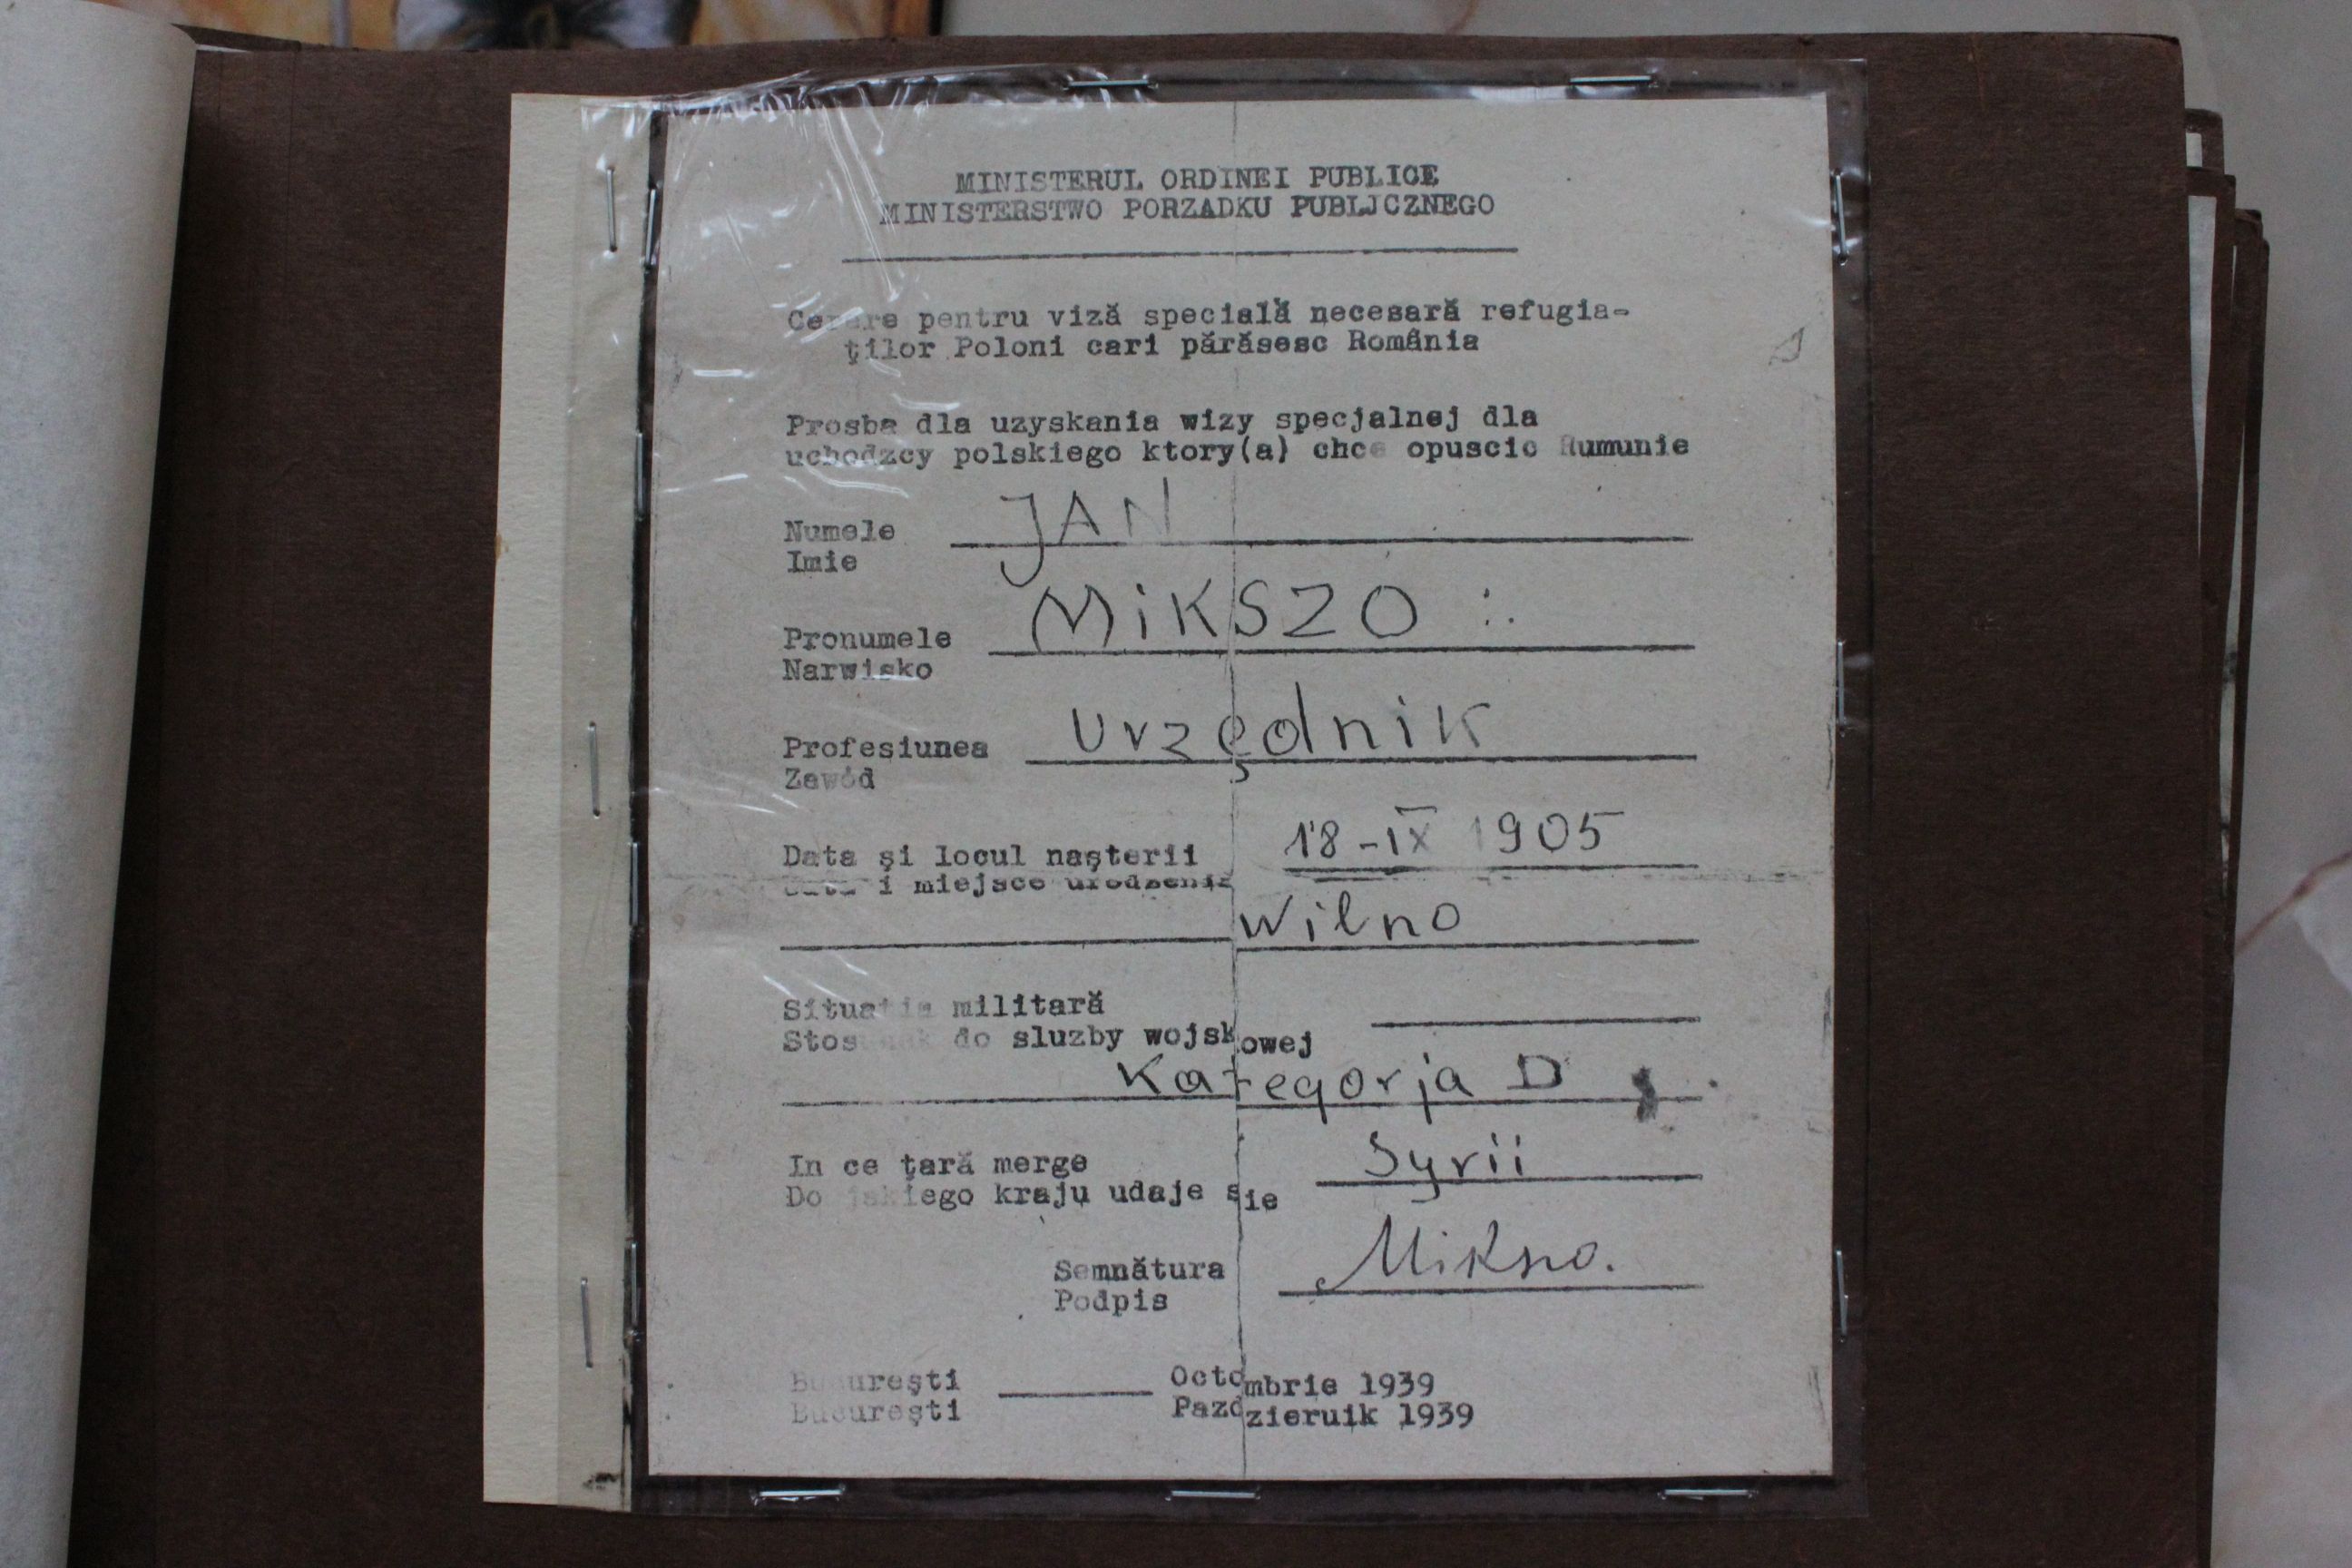 MINISTERUL ORDINEI PUBLICE
MINISTERSTWO PORZADKU PUBLJCZNEGO
Cerere pentru viză specială necesară refugia-
ţilor Poloni cari părăsesc România
Prosba dla uzyskania wizy specjalnej dla
uchodzcy polskiego ktory(a) chce opuscic Rumunie
Numele JAN
Imie
Pronumele MiKSZO :.
Narwisko
Profesiunea Urzędnik
Zawód
Data şi locul naşterii 18-IX 1905
Data i miejsce urodzenia
Wilno
Situatia militară
Stosunek do sluzby wojskowej
Kategorja D
In ce ţară merge Syrii
Do jakiego kraju udaje sie
Semnătura Mikszo.
Podpis
Bucureşti Octombrie 1939
Bucureşti Pazdzieruik 1939